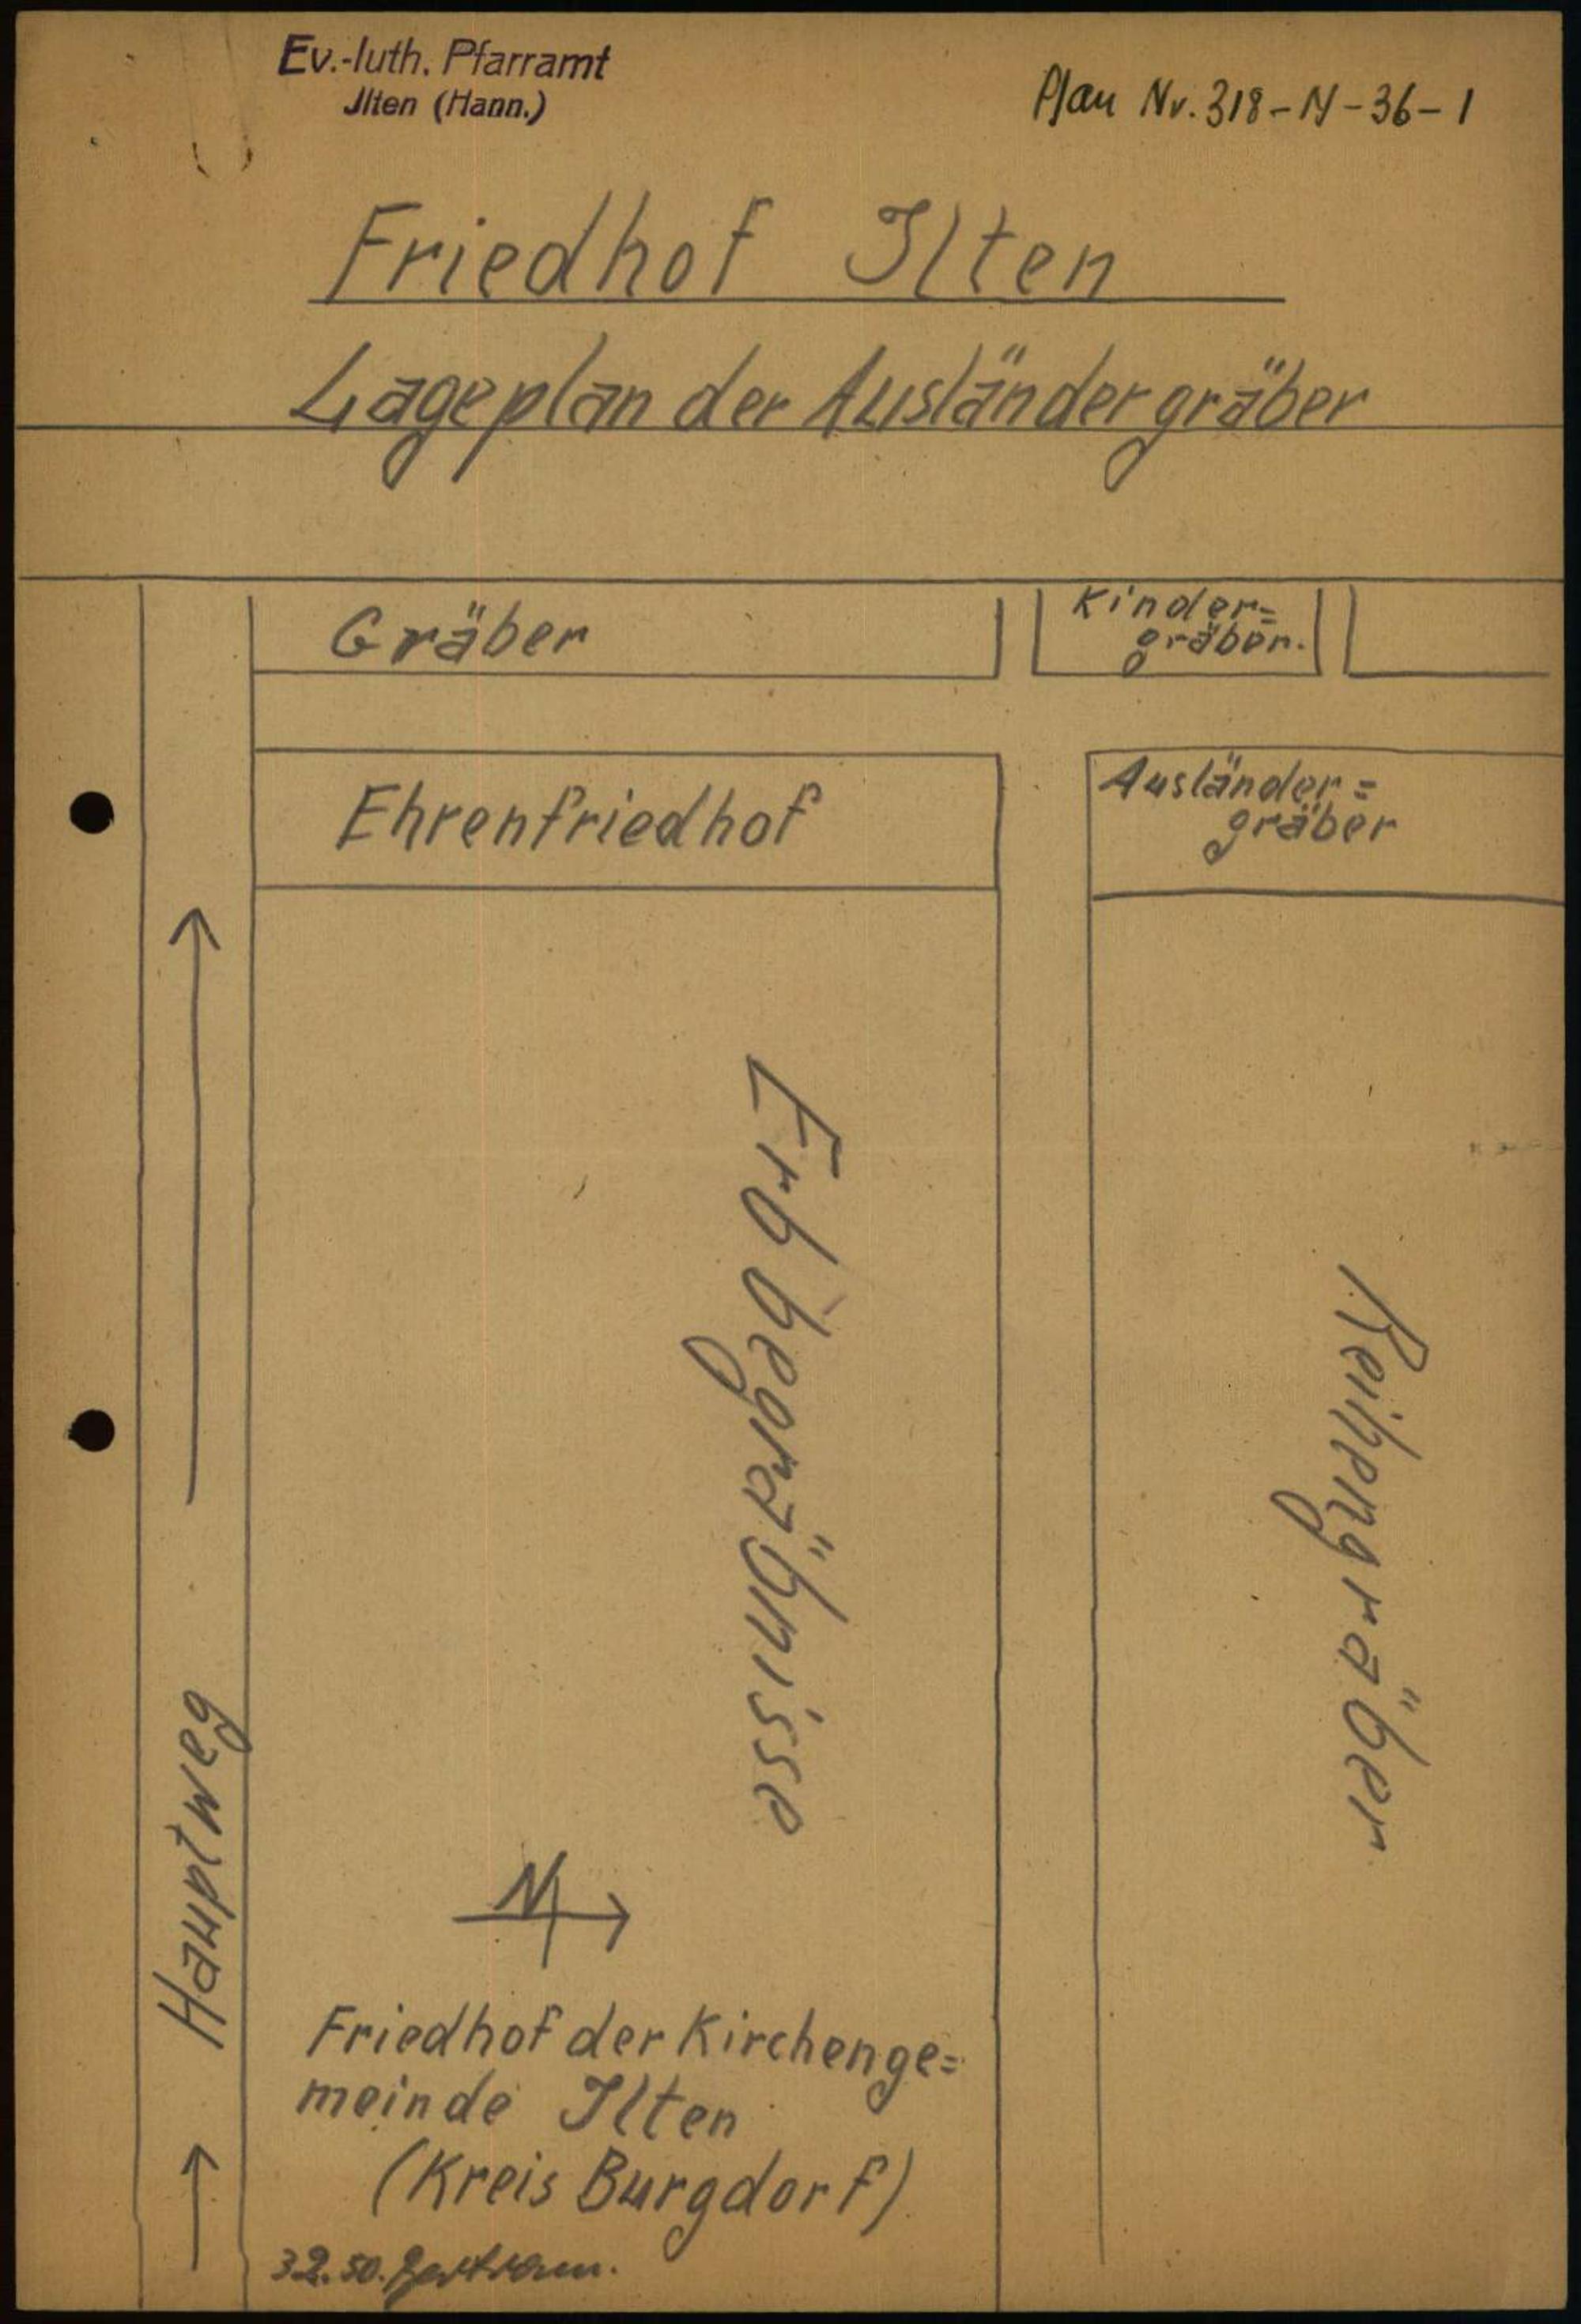 Ev.-luth. Pfarramt
Jlten (Hann.)
Plan Nr. 318-N-36-1
Friedhof Ilten
Lageplan der Ausländergräber
Gräber
Kinder=
gräber.
Ehrenfriedhof
Ausländer=
gräber
Erbbegräbnisse
Reihengräber
Hauptweg
N
Friedhof der Kirchenge=
meinde Ilten
(Kreis Burgdorf)
3.2.50.